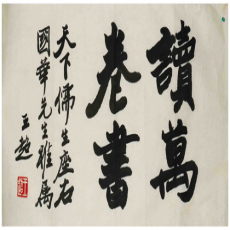 讀萬
卷書
天下儒生座右
國華先生雅屬
王趙